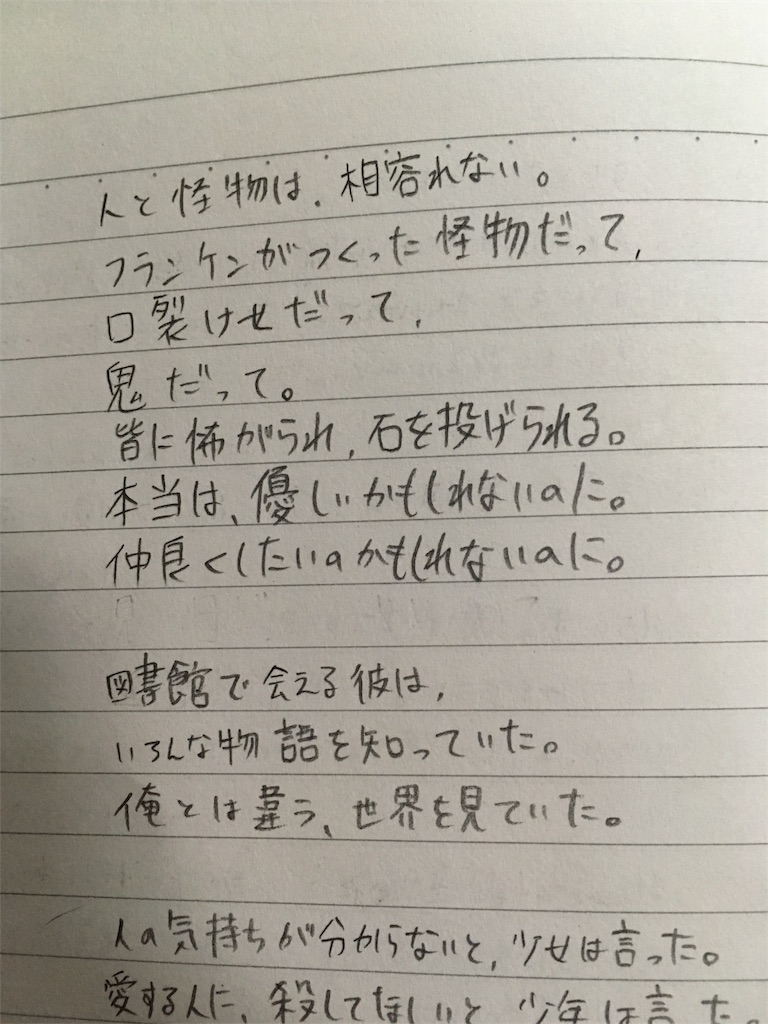 人と怪物は、相容れない。
フランケンがつくった怪物だって、
口裂けせだって、
鬼だって。
皆に怖がられ、石を投げられる。
本当は、優しいかもしれないのに。
仲良くしたいのかもしれないのに。
図書館で会える彼は、
いろんな物語を知っていた。
俺とは違う、世界を見ていた。
人の気持ちが分からないと、少女は言った。
愛する人に、殺してほしいと少年は言った。